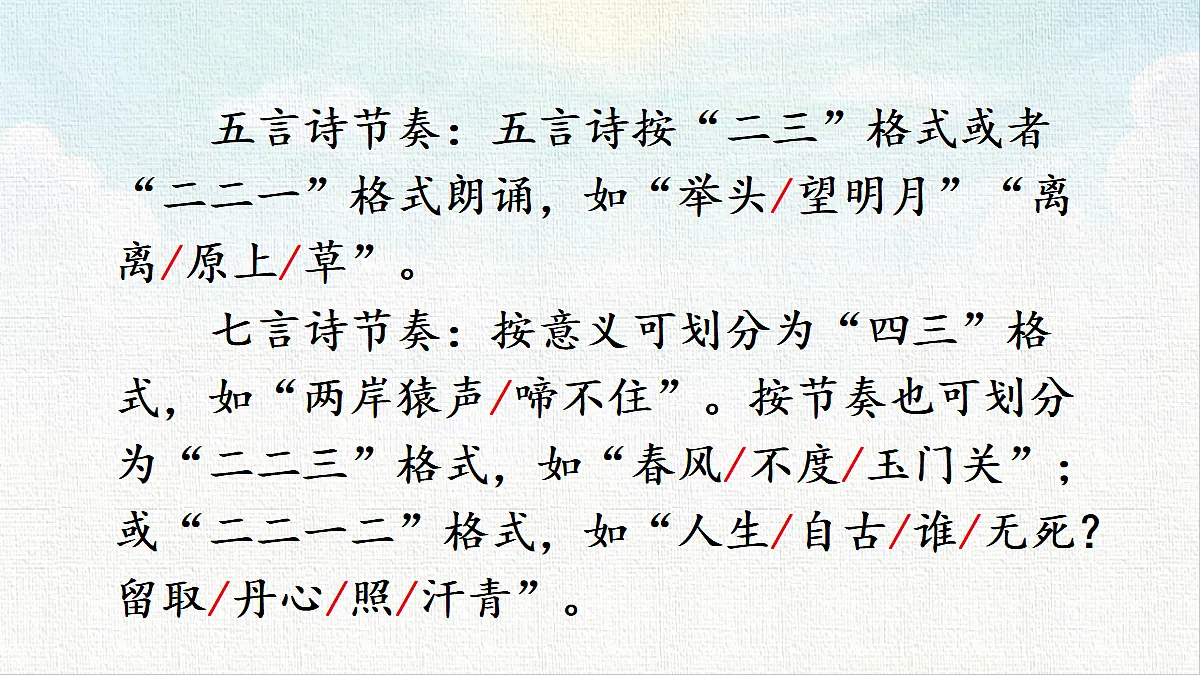 五言诗节奏：五言诗按“二三”格式或者
“二二一”格式朗诵，如“举头/望明月”“离
离/原上/草”。
七言诗节奏：按意义可划分为“四三”格
式，如“两岸猿声/啼不住”。按节奏也可划分
为“二二三”格式，如“春风/不度/玉门关”；
或“二二一二”格式，如“人生/自古/谁/无死？
留取/丹心/照/汗青”。